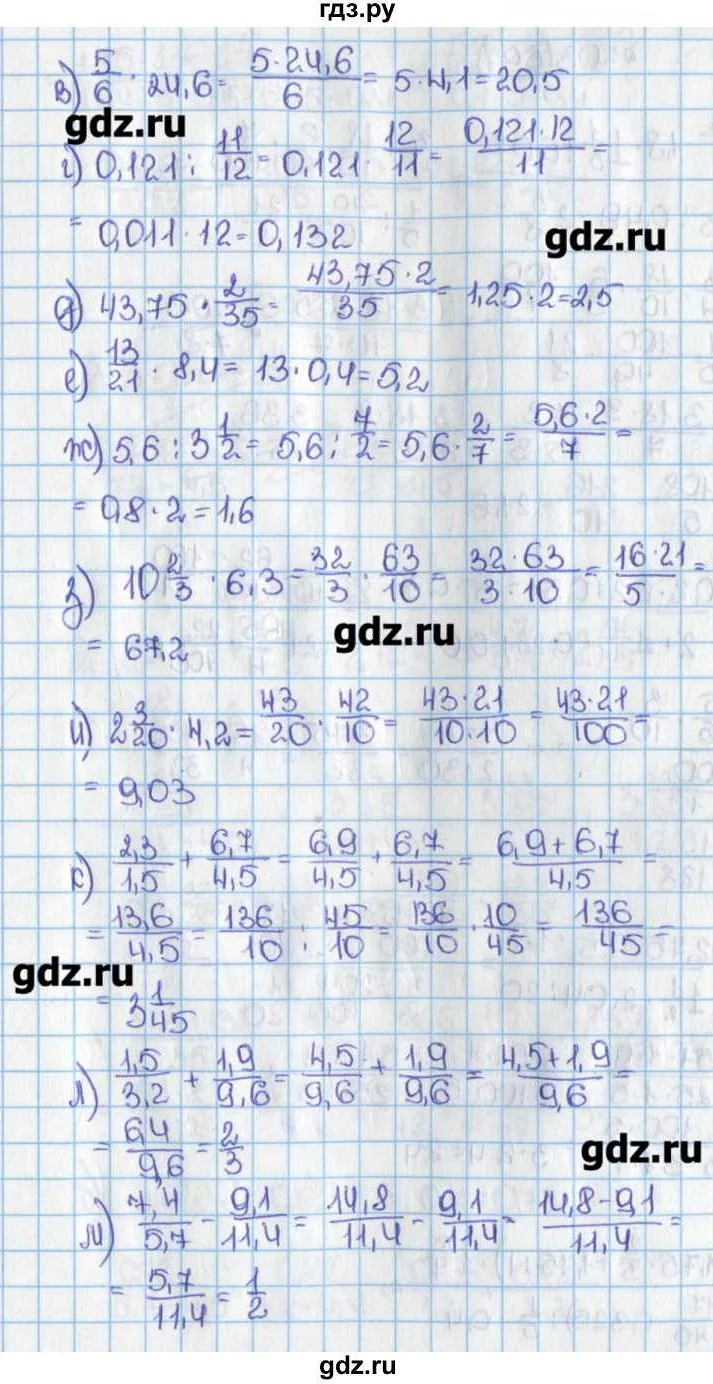 гдз.ру
в) 5/6 · 24,6 = 5·24,6/6 = 5·4,1 = 20,5
gdz.ru
г) 0,121 : 11/12 = 0,121 · 12/11 = 0,121·12/11 =
= 0,011 · 12 = 0,132
gdz.ru
д) 43,75 · 2/35 = 43,75·2/35 = 1,25·2 = 2,5
е) 13/21 · 8,4 = 13·0,4 = 5,2
ж) 5,6 : 3 1/2 = 5,6 : 7/2 = 5,6 · 2/7 = 5,6·2/7 =
= 0,8 · 2 = 1,6
з) 10 2/3 · 6,3 = 32/3 · 63/10 = 32·63/3·10 = 16·21/5 =
gdz.ru
= 67,2
и) 2 3/20 · 4,2 = 43/20 · 42/10 = 43·21/10·10 = 43·21/100 =
= 9,03
к) 2,3/1,5 + 6,7/4,5 = 6,9/4,5 + 6,7/4,5 = 6,9+6,7/4,5 =
= 13,6/4,5 = 136/10 : 45/10 = 136/10 · 10/45 = 136/45 =
gdz.ru
= 3 1/45
л) 1,5/3,2 + 1,9/9,6 = 4,5/9,6 + 1,9/9,6 = 4,5+1,9/9,6 =
= 6,4/9,6 = 2/3
gdz.ru
м) 7,4/5,7 - 9,1/11,4 = 14,8/11,4 - 9,1/11,4 = 14,8-9,1/11,4 =
= 5,7/11,4 = 1/2
gdz.ru